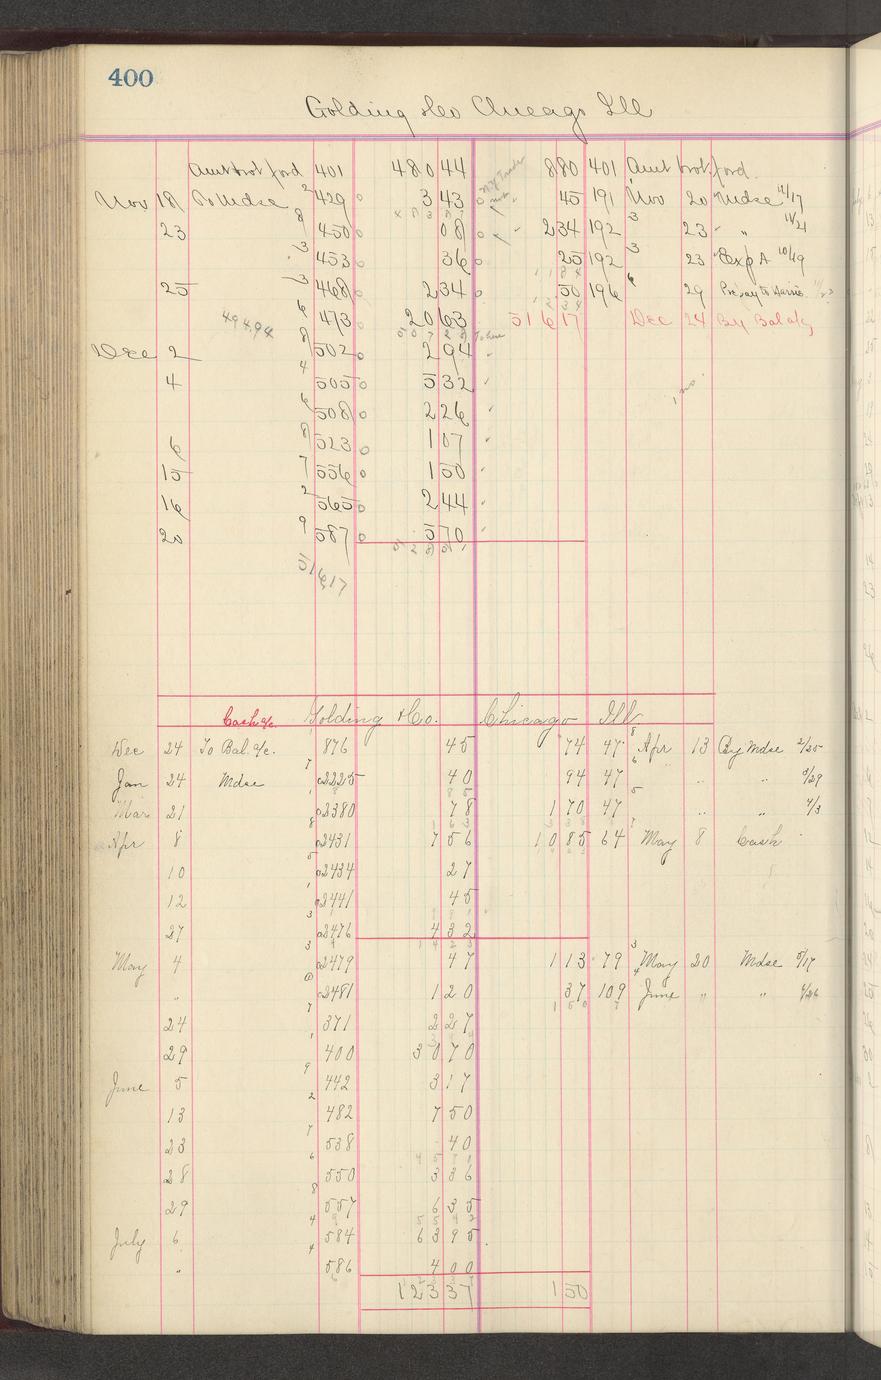 400
Golding & Co Chicago Ill
Amt brot ford 401 480 44 8 80 401 Amt brot. ford.
Nov 18 To Mdse 2 429 3 43 45 191 Nov 20 " Mdse 11/17
23 8 450 08 2 34 192 3 23 " " 11/21
3 453 36 25 192 3 23 " Exp A 10/19
25 3 468 2 34 50 196 6 29
494.94 6 473 20 63 516 17 Dec 24 By Bal a/c
Dec 2 8 502 2 94
4 4 505 5 32
6 508 2 26
6 8 523 1 07
15 7 556 1 50
16 2 565 2 44
20 9 587 5 70
516,17
Cash a/c. Golding & Co. Chicago Ill.
Dec 24 To Bal. a/c. 876 45 74 47 8 Apr 13 By Mdse 2/25
Jan 24 Mdse 7 2225 40 94 47 6 " " 3/29
Mar 21 1 2380 78 1 70 47 5 " " 4/3
Apr 8 8 2431 7 56 10 85 64 May 8 Cash
10 5 2434 27
12 1 2441 45
27 3 2476 4 32
May 4 3 2479 47 1 13 79 3 May 20 Mdse 5/17
" 2481 1 20 37 109 4 June " " 6/26
24 7 371 2 27
29 1 400 30 70
June 5 9 442 3 17
13 2 482 7 50
23 7 538 40
28 6 550 3 36
29 8 557 6 35
July 6 4 584 63 95
" 4 586 4 00
123 37 1 50